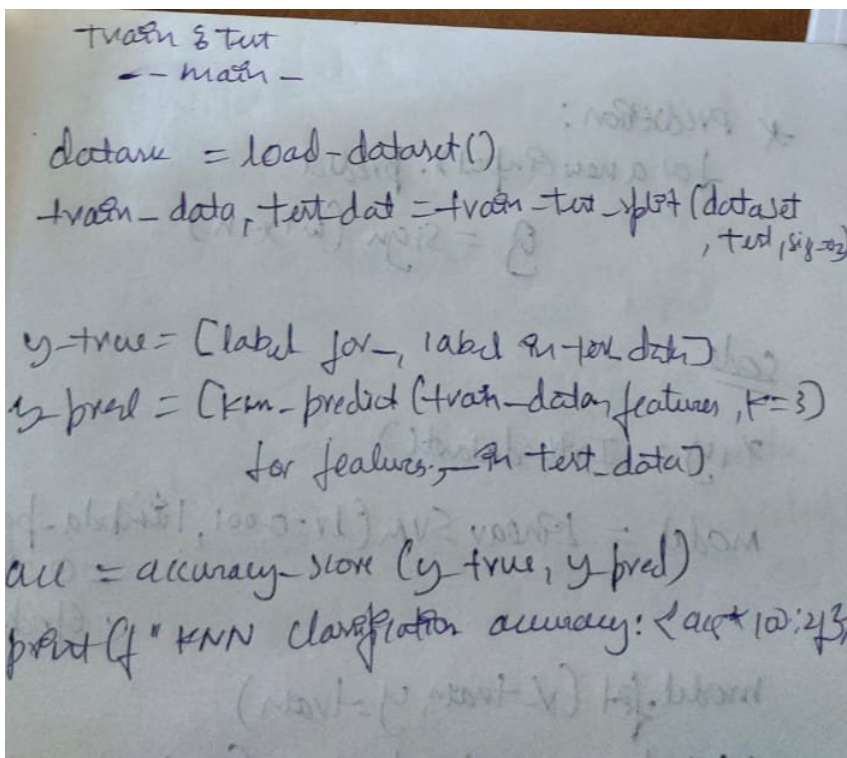 train & test
-- main -
dataset = load-dataset()
train_data, test_dat = train_test_split(dataset
, test, siz=0.3)
y-true = [label for _, label in test data]
y-pred = [knn_predict (train_data, features, k=3)
for features, _ in test_data].
acc = accuracy_score (y_true, y_pred)
print(f" KNN classification accuracy: {acc*100:.2f}